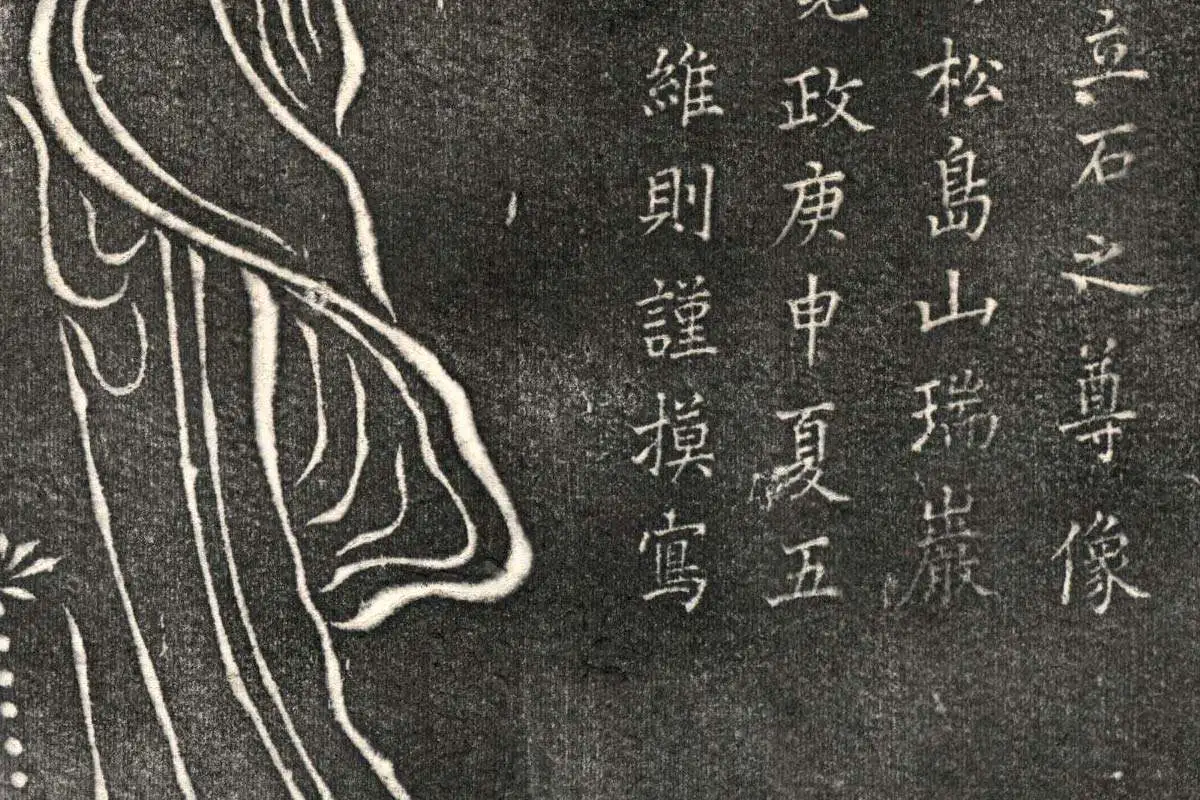 立石之尊像
松島山瑞巖
政庚申夏五
維則謹摸寫